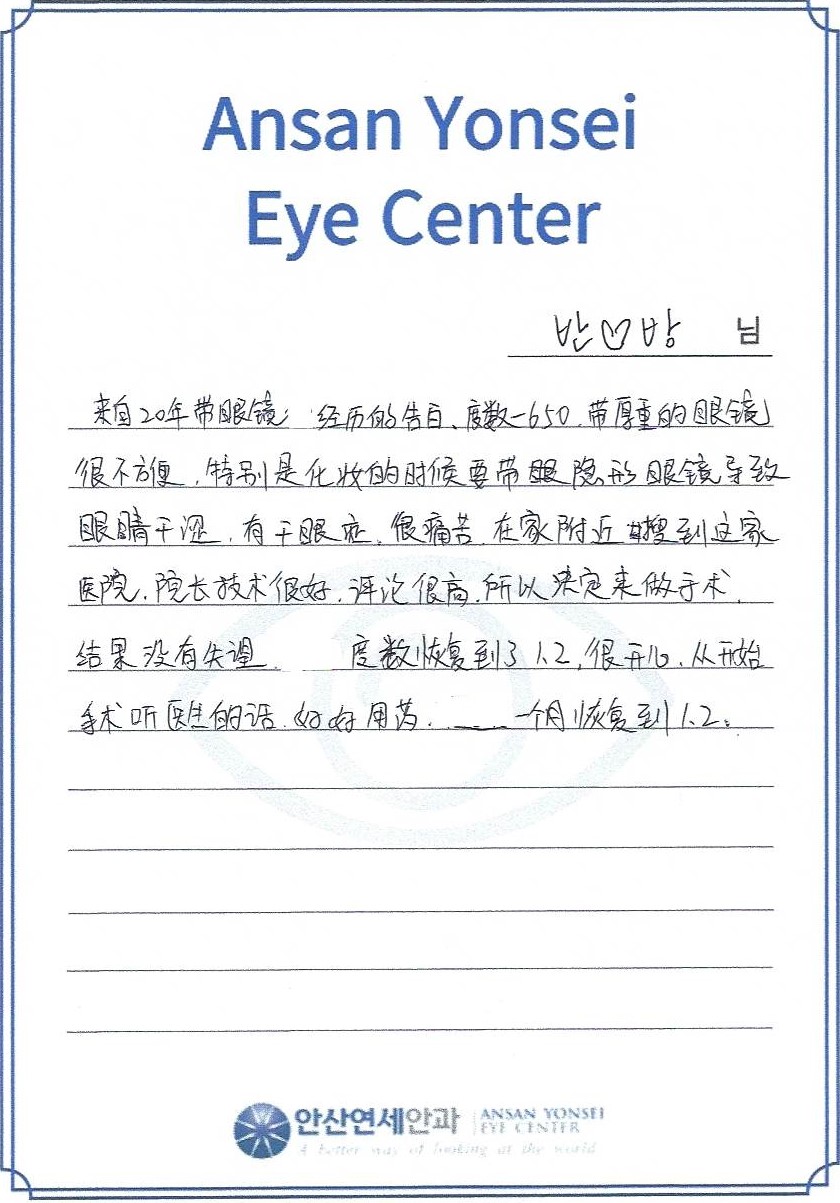 Ansan Yonsei
Eye Center
반♡방 님
来自20年带眼镜 经历的告白、度数-650.带厚重的眼镜
很不方便.特别是化妆的时候要带眼隐形眼镜导致
眼睛干涩.有干眼症.很痛苦.在家附近搜到这家
医院.院长技术很好.评论很高.所以决定来做手术.
结果没有失望. 度数恢复到了1.2,很开心.从开始
手术听医生的话.好好用药. 一个月恢复到1.2。
안산연세안과 ANSAN YONSEI
EYE CENTER
A better way of looking at the world